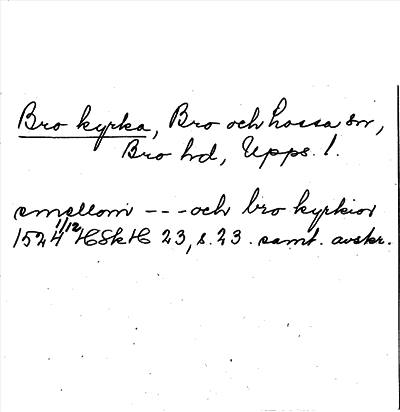 Bro kyrka, Bro och Lossa sn,
Bro hd, Upps. l.
emellom --- och bro kyrkior
1524 1/12 HSkH 23, s. 23. samt. avskr.